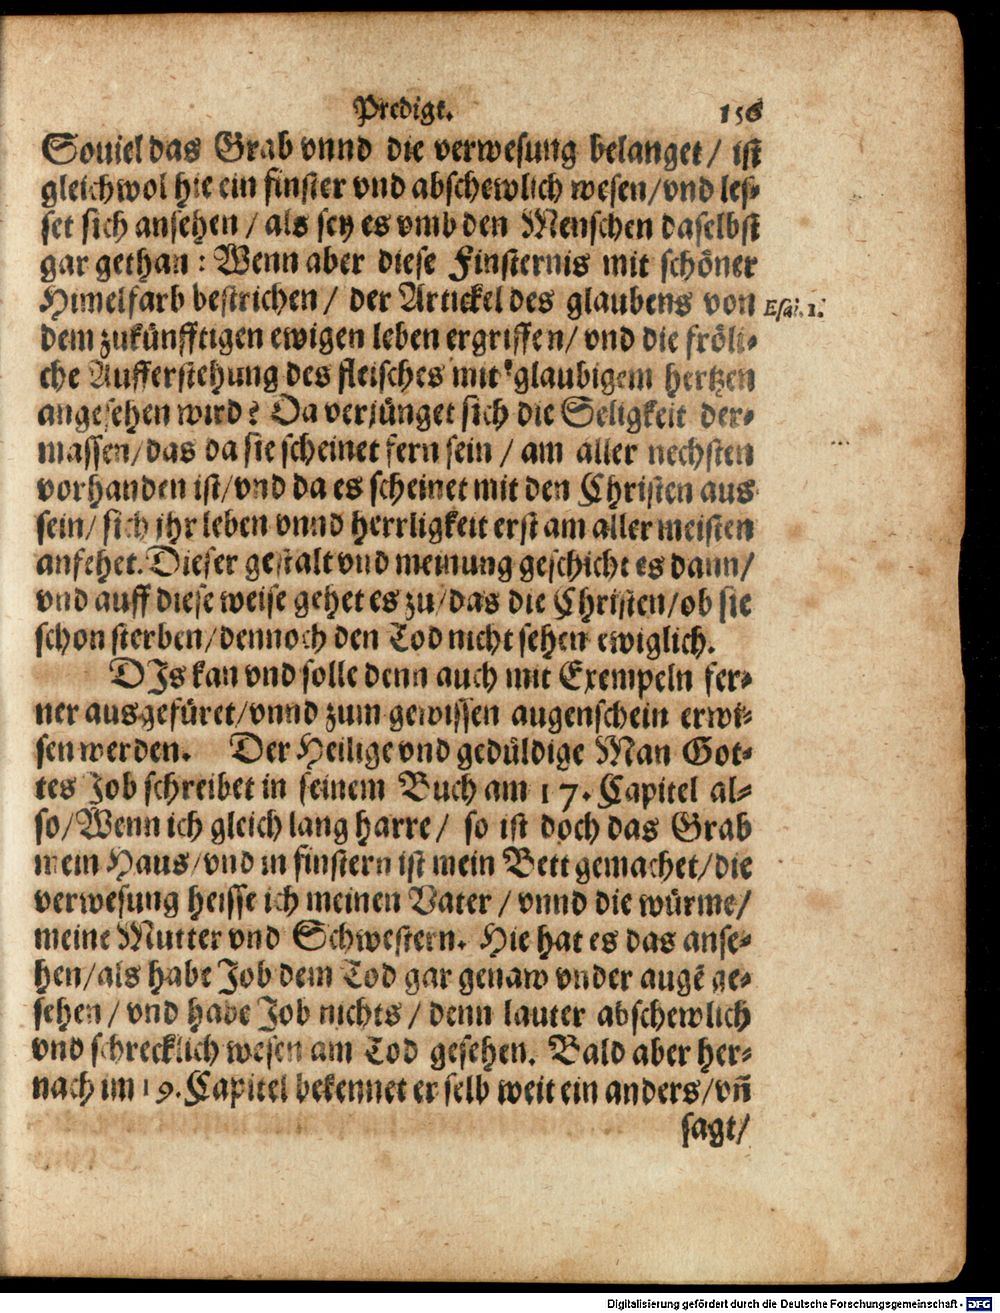 Predigt. 156
Souiel das Grab vnnd die verwesung belanget/ ist
gleichwol hie ein finster vnd abschewlich wesen/vnd les-
set sich ansehen / als sey es vmb den Menschen daselbst
gar gethan : Wenn aber diese Finsternis mit schöner
Himelfarb bestrichen / der Artickel des glaubens von
Esai. 1.
dem zukünfftigen ewigen leben ergriffen/ vnd die fröli-
che Aufferstehung des fleisches mit glaubigem hertzen
angesehen wird? Da verjünget sich die Seligkeit der-
massen/das da sie scheinet fern sein / am aller nechsten
vorhanden ist/vnd da es scheinet mit den Christen aus
sein/ sich ihr leben vnnd herrligkeit erst am aller meisten
anfehet. Dieser gestalt vnd meinung geschicht es dann/
vnd auff diese weise gehet es zu/das die Christen/ob sie
schon sterben/dennoch den Tod nicht sehen ewiglich.
DIs kan vnd solle denn auch mit Exempeln fer-
ner ausgefüret/vnnd zum gewissen augenschein erwi-
sen werden. Der Heilige vnd gedüldige Man Got-
tes Job schreibet in seinem Buch am 17. Capitel al-
so/Wenn ich gleich lang harre / so ist doch das Grab
mein Haus/vnd in finstern ist mein Bett gemachet/die
verwesung heisse ich meinen Vater / vnnd die würme/
meine Mutter vnd Schwestern. Hie hat es das anse-
hen/als habe Job dem Tod gar genaw vnder augē ge-
sehen / vnd habe Job nichts / denn lauter abschewlich
vnd schrecklich wesen am Tod gesehen. Bald aber her-
nach im 19. Capitel bekennet er selb weit ein anders/vñ
sagt/
Digitalisierung gefördert durch die Deutsche Forschungsgemeinschaft - DFG